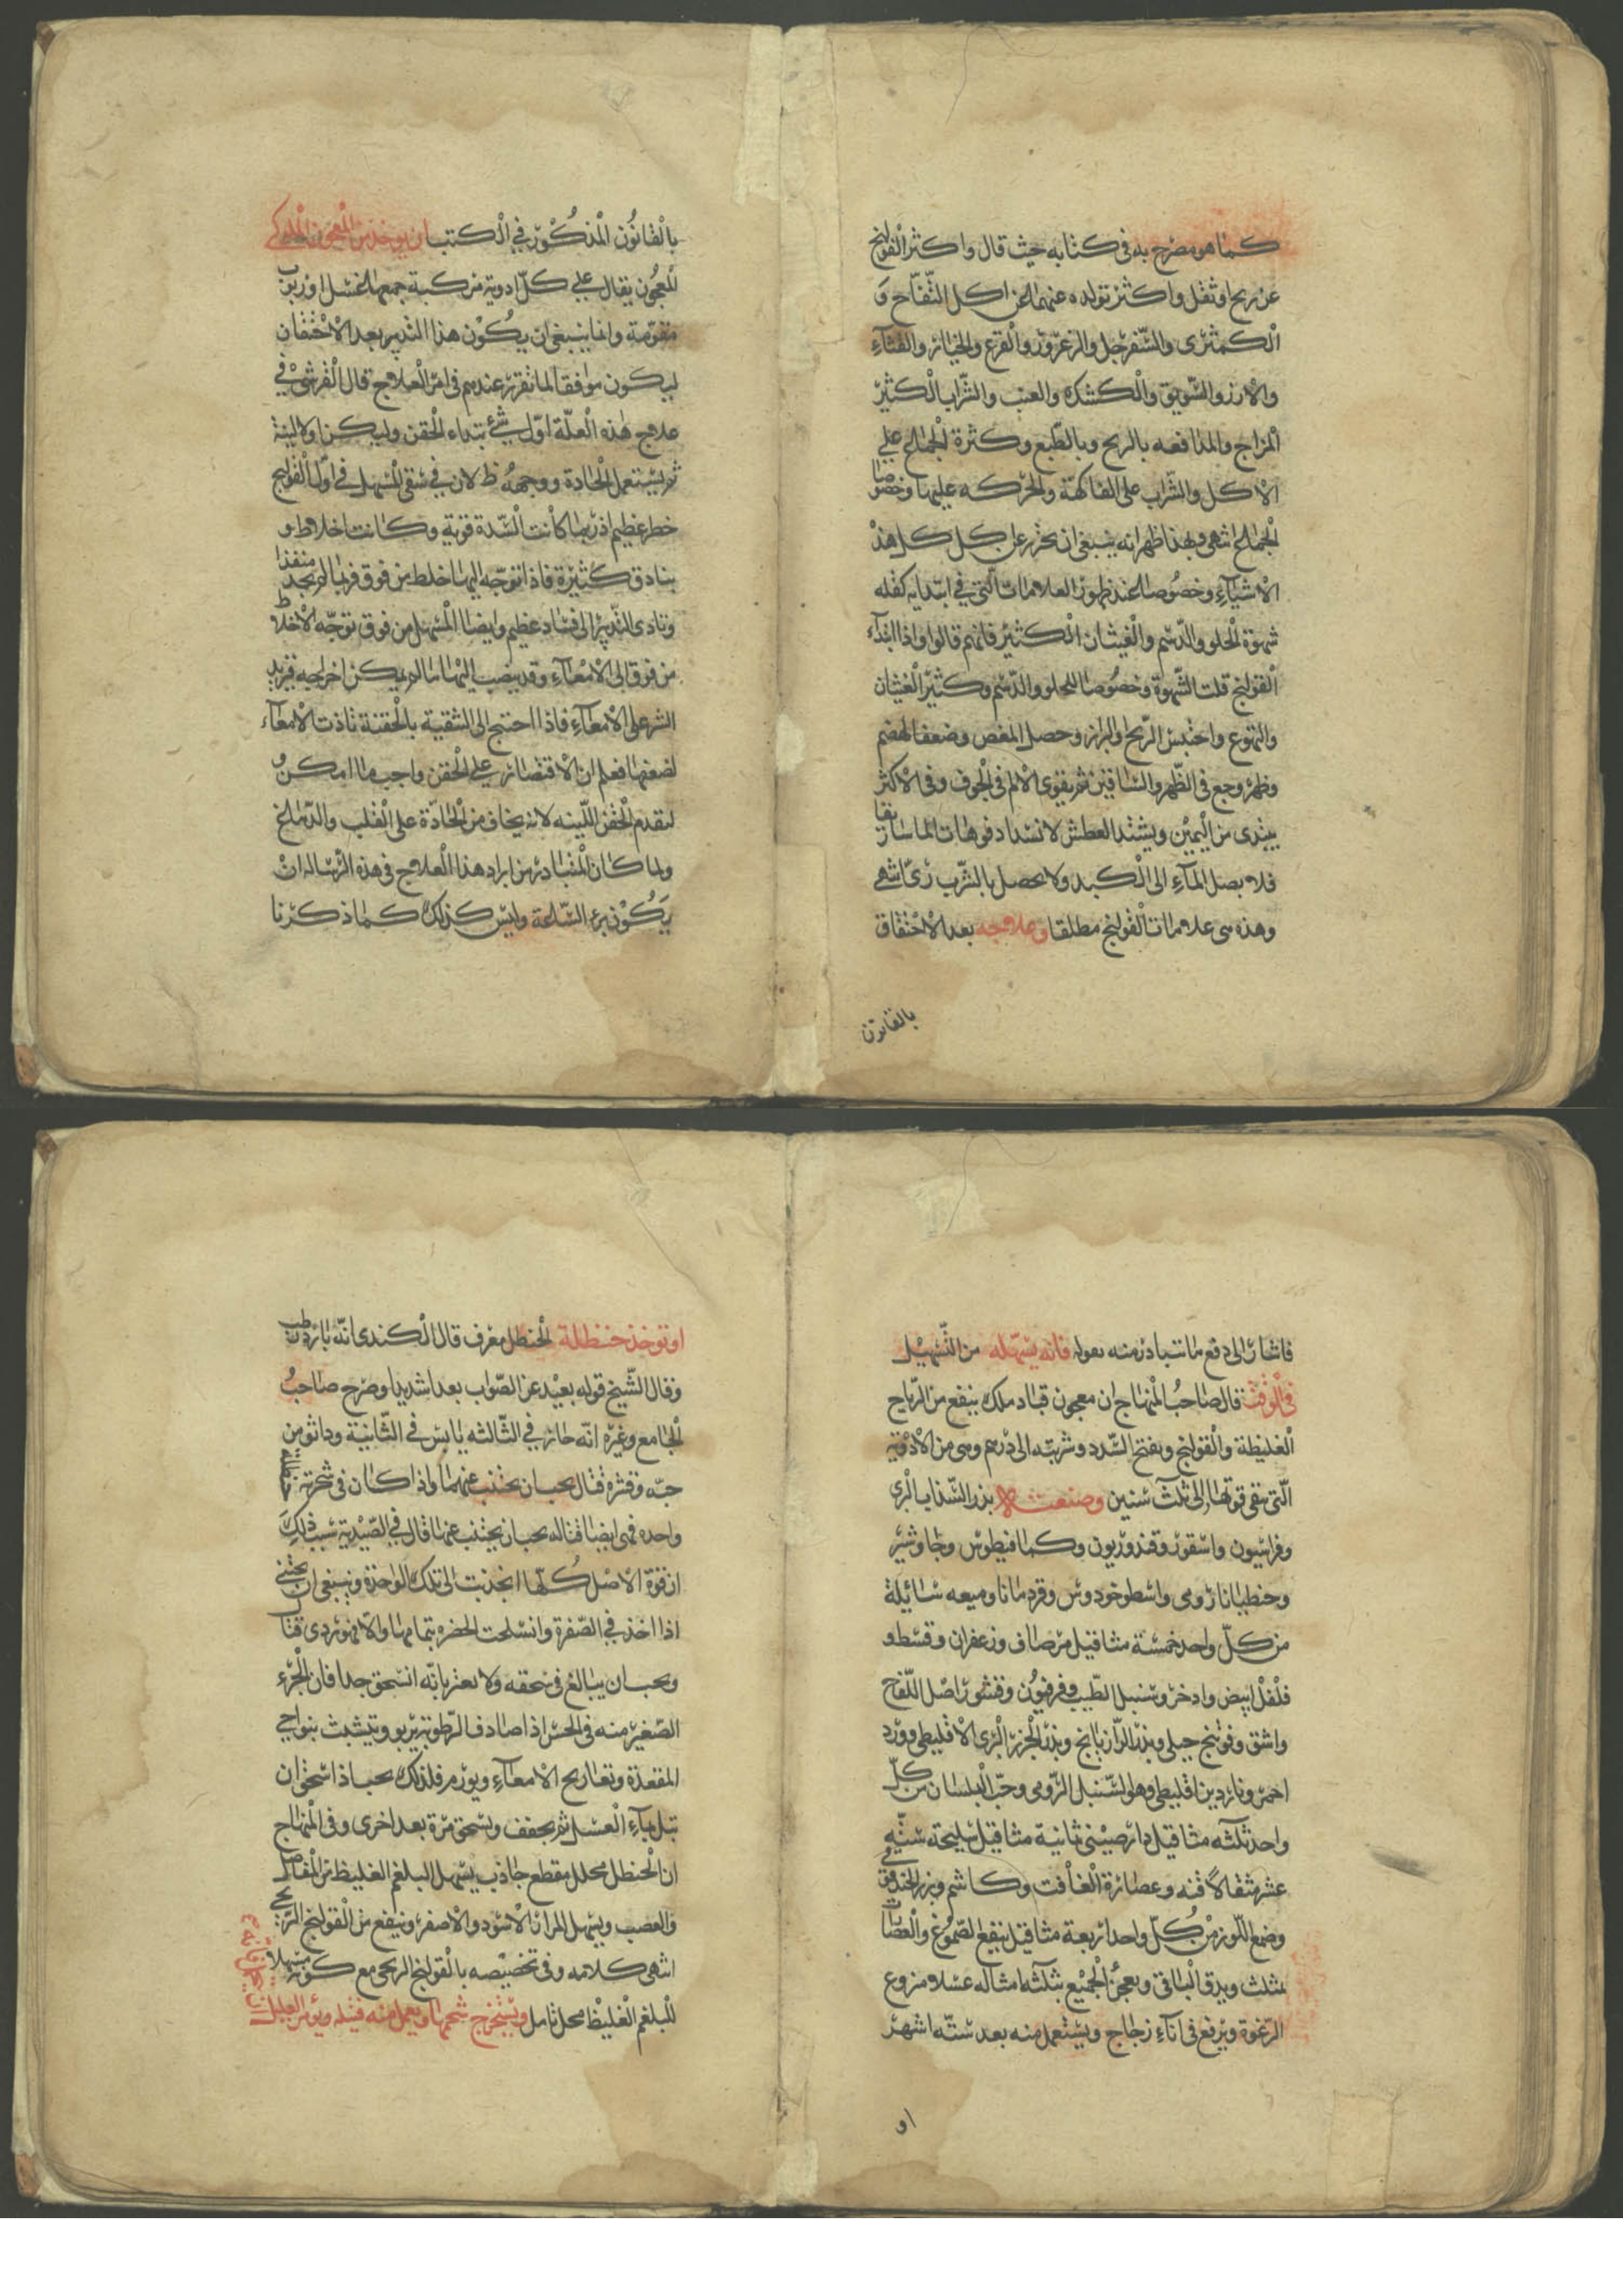 كما هو مصرح به في كتابه حيث قال واكثر القولنج
عن ريح او ثفل واكثر تولده عنهما عن اكل التفاح و
الكمثرى والسفرجل والزعرور والقرع والخيار والقثاء
والارز والسويق والكشكه والعنب والشراب الكثير
المزاج والمدافعه بالريح وبالطبع وكثرة الجماع على
الاكل والشراب على الفاكهة والحركه عليها وخصوصا
الجماع انتهى وبهذا ظهر انه ينبغي ان يحترز عن كل كل هذه
الاشياء وخصوصا عند ظهور العلامات التي في ابتدايه كقله
شهوة الحلو والدسم والغيثان الكثير فانهم قالوا واذا ابتداء
القولنج قلت الشهوة وخصوصا للحلو والدسم وكثير الغيثان
والتهوع واحتبس الريح والبراز وحصل المغص وضعف الهضم
وظهر وجع في الظهر والساقين ثم يقوى الالم في الجوف وفي الاكثر
يبتدى من اليمين ويشتد العطش لانسداد فوهات الماساريقا
فلا يصل الماء الى الكبد ولا يحصل بالشرب رى انتهى
وهذه هى علامات القولنج مطلقا وعلاجه بعد الاحتقان
بالقانون
بالقانون المذكور في الكتب ان يوخذ من المعجون الملوكي
المعجون يقال على كل ادوية مركبة جمعها عسل او زبوب
مقومة وانما ينبغي ان يكون هذا التدبير بعد الاحتقان
ليكون موافقا لما تقرر عندهم في امر العلاج قال القرشى في
علاج هذه العلة اول شئ يبتداء الحقن وليكن اولا لينة
ثم يستعمل الحادة ووجهه ظ لان في سقي المسهل في اول القولنج
خطر عظيم اذ ربما كانت السدة قوية وكانت اخلاط و
بنادق كثيرة فاذا توجه اليها خلط من فوق فربما لم يجد منفذا
وتادى التدبير الى فساد عظيم وايضا المسهل من فوق توجه الاخلاط
من فوق الى الامعاء وقد ينصب اليها ما لم يمكن اخراجه فيزيد
الشر على الامعاء فاذا احتيج الى التنقية بالحقنة تاذت الامعاء
لضعفها فعلم ان الاقتصار على الحقن واجب ما امكن و
لتقدم الحقن اللينه لانه يخاف من الحادة على القلب والدماغ
ولما كان المتبادر من ايراد هذا العلاج في هذه الرساله ان
يكون برء الساعة وليس كذلك كما ذكرنا
فاشار الى دفع ما تتبادر منه بقوله فانه يسهله من التسهيل
في الوقت قال صاحب المنهاج ان معجون قباد ملك ينفع من الرياح
الغليظة والقولنج ويفتح السدد وشربته الى درهم وهى من الادوية
التي تبقى قوتها الى ثلث سنين وصنعته بزر السذاب البرى
وفراسيون واسقورقندوريون وكمافيطوس وجاوشير
وجنطيانا رومى واسطوخودوس وقردمانا وميعه سائيلة
من كل واحد خمسة مثاقيل مر صاف وزعفران وقسط و
فلفل ابيض واذخر وسنبل الطيب وفرفيون وقشور اصل اللفاح
واشق وفوتنج جبلى وبذر الرازيانج وبذر الجزر البرى الاقليطى وورد
احمر وناردين اقليطى وهو السنبل الرومى وحب البلسان من كل
واحد ثلثه مثاقيل دارصينى ثمانية مثاقيل سليخة ستة
عشر مثقالا قنه وعصارة الغافت وكاشم وبزر الحندقوقى
وصمغ اللوز من كل واحد اربعة مثاقيل ينقع الصموغ والعصارات
بمثلث ويدق الباقى ويعجن الجميع بثلثه امثاله عسلا منزوع
الرغوة ويرفع في اناء زجاج ويستعمل منه بعد سته اشهر
او
او توخذ حنظلة الحنظل معرف قال الكندى انه بارد رطب
وقال الشيخ قوله بعيد عن الصواب بعدا شديدا وصرح صاحب
الجامع وغيره انه حار في الثالثه يابس في الثانية وما ثومن
حبه وقشره قتال يجب ان يجتنب عنهما واذا كان في شجرته حنظلة
واحده فهى ايضا قتاله يجب ان يجتنب عنها قال في الصيدية سبب ذلك
ان قوة الاصل كلها انجذبت الى تلك الواحدة وينبغى ان يجتنى
اذا اخذ في الصفرة وانسلخت الخضره بتمامها والا فهو ردى قتال
ويجب ان يبالغ في سحقه ولا يعتر بانه انسحق جدا فان الجزء
الصغير منه في الحس اذا صادف الرطوبة يربو ويتشبث بنواحى
المقعدة وتعاريج الامعاء ويورم فلذلك يجب اذا سحق ان
تبل بماء العسل ثم يجفف ويسحق مرة بعد اخرى وفى المنهاج
ان الحنظل محلل مقطع جاذب يسهل البلغم الغليظ من المفاصل
والعصب ويسهل المرار الاسود والاصفر وينفع من القولنج الريحى
انتهى كلامه وفى تخصيصه بالقولنج الريحى مع كونه مسهلا
للبلغم الغليظ محل تامل ويستخرج شحمها ويعمل منه فتيله ويؤمر العليل